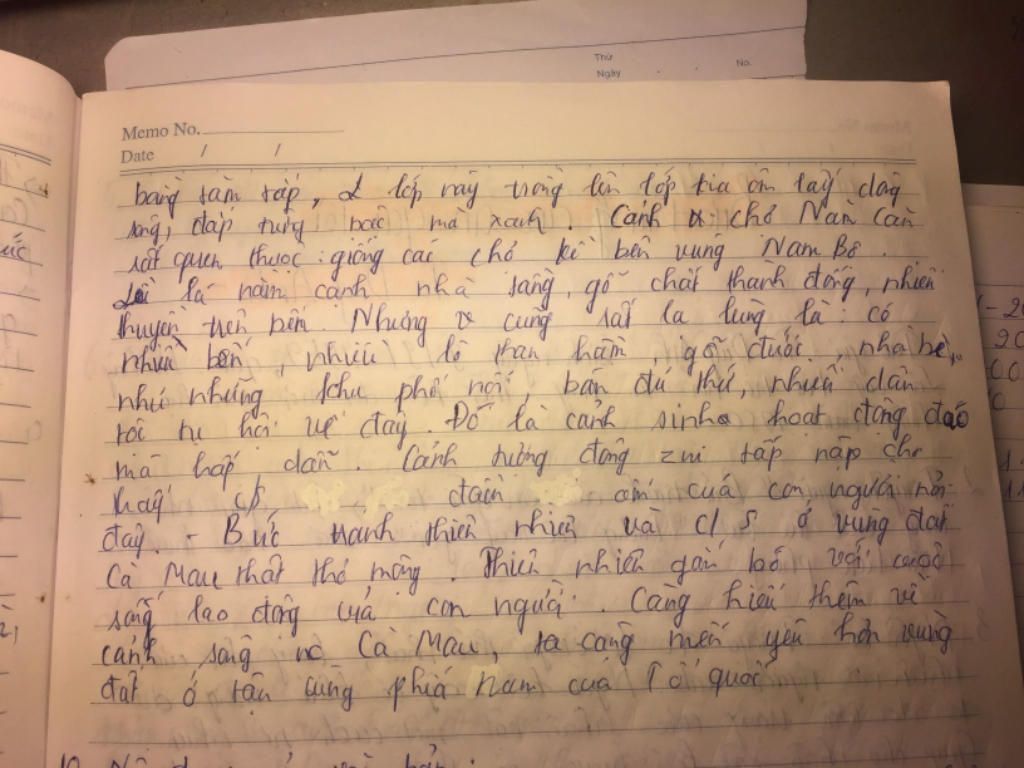 Thứ
Ngày . . No.
Memo No.
Date / /
bằng tăm tắp, lớp này trồng lên lớp kia ôm lấy dòng
sông, đắp từng bậc màu xanh. Cảnh chợ Năm Căn
rất quen thuộc: giống các chợ kề bên vùng Nam Bộ.
Lều lá nằm cạnh nhà tầng, gỗ chất thành đống, nhiều
thuyền trên bến. Nhưng cũng rất lạ lùng là: có
nhiều bến, nhiều lò than hầm, gỗ đước, nhà bè,
như những khu phố nổi, bán đủ thứ, nhiều dân
tộc tụ hội về đây. Đó là cảnh sinh hoạt động đáo
mà hấp dẫn. Cảnh tượng đông vui tấp nập cho
thấy c/s của con người nơi
đây. - Bức tranh thiên nhiên và c/s ở vùng đất
Cà Mau thật thơ mộng. Thiên nhiên gắn bó với cuộc
sống lao động của con người. Càng hiểu thêm về
cảnh sông nc Cà Mau, ta càng mến yêu hơn vùng
đất ở tận cùng phía Nam của Tổ quốc